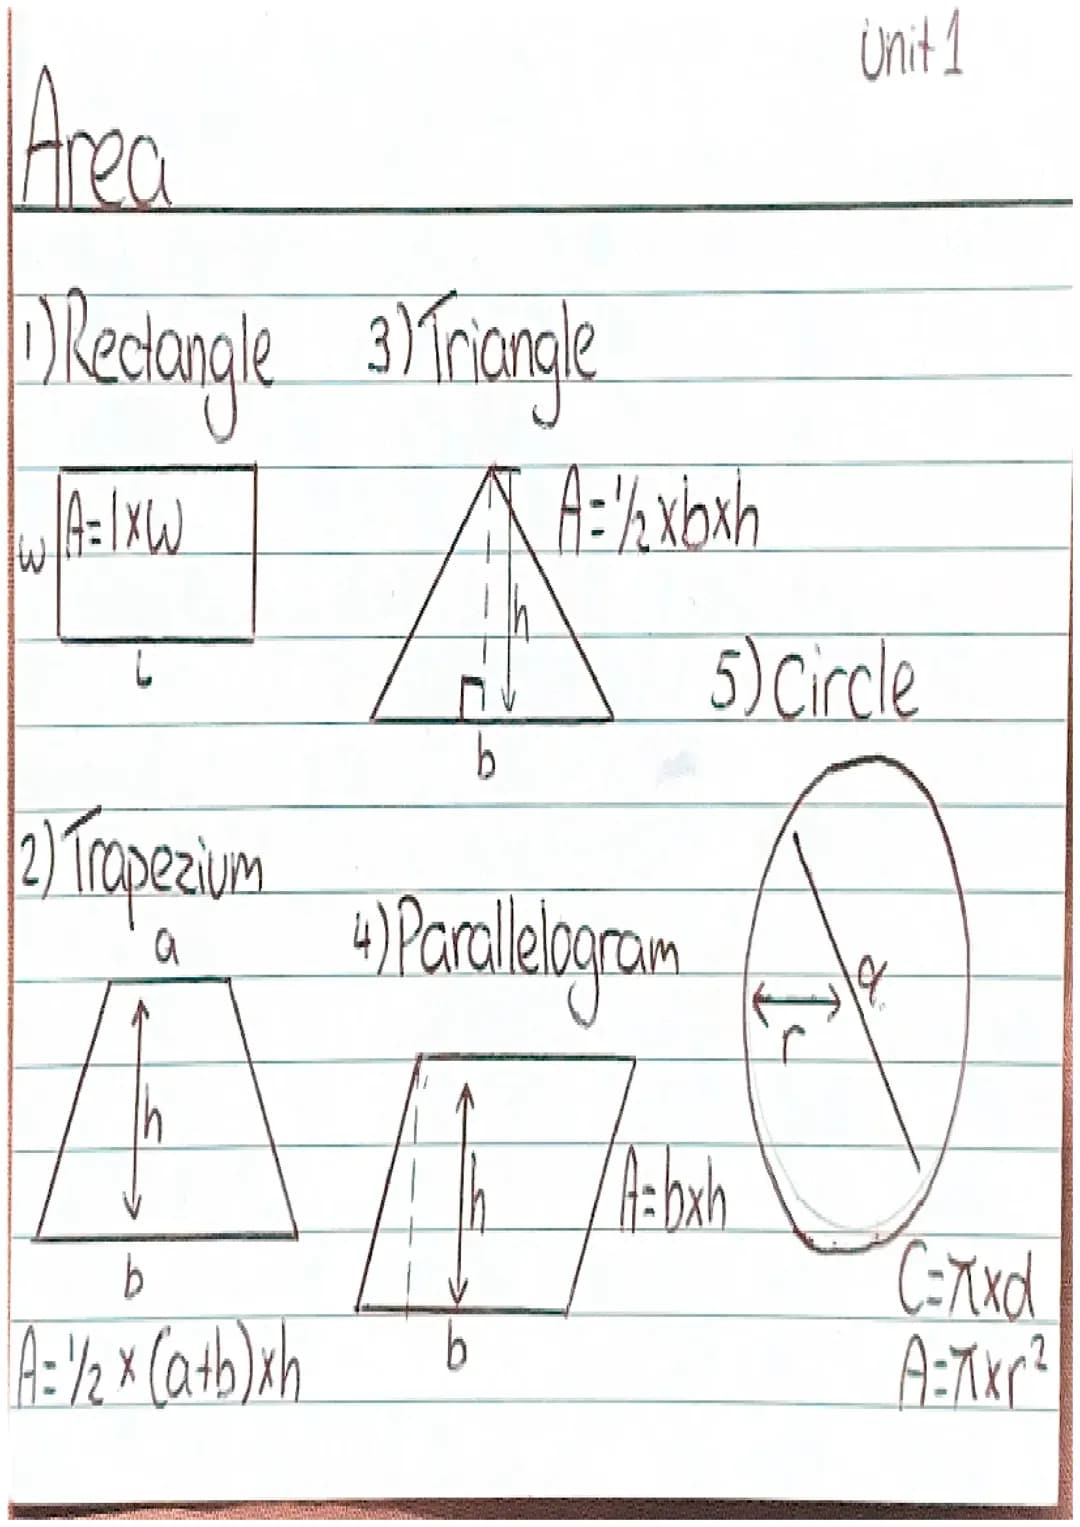 Unit 1
Area
1) Rectangle
A = l × w
w
l
3) Triangle
A = 1/2 × b × h
h
b
5) Circle
r
C = π × d
A = π × r²
2) Trapezium
a
h
b
A = 1/2 × (a+b) × h
4) Parallelogram
h
A = b × h
b